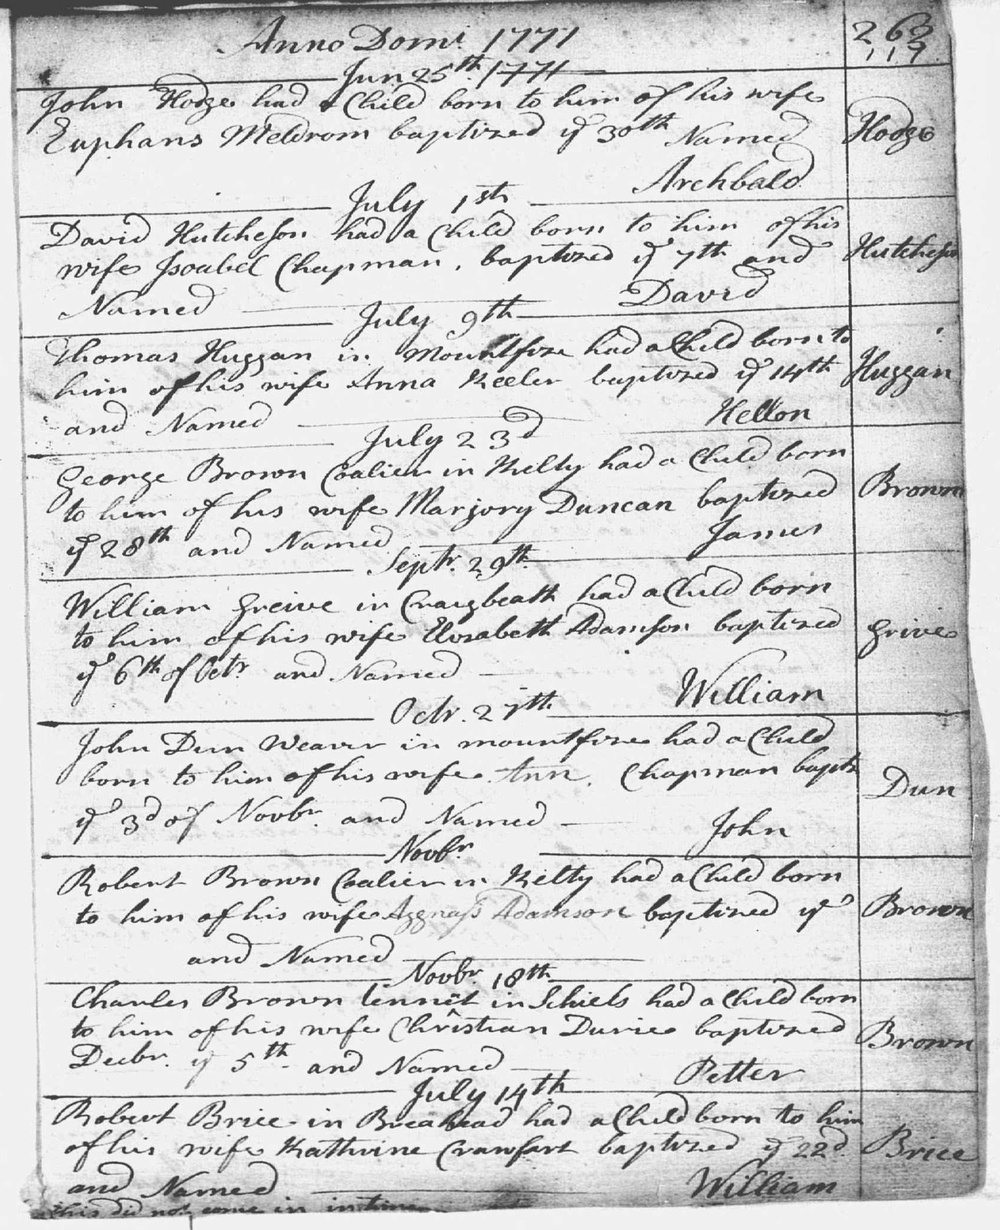 Anno Domi 1771
263
119
Jun 25th 1771
John Hodge had a Child born to him of his wife
Euphans Meldrom baptized ye 30th Named
Hodge
Archbald
July 1st
David Hutcheson had a Child born to him of his
wife Isoabel Chapman, baptized ye 7th and
Hutcheson
Named David
July 9th
Thomas Huggan in Mountfire had a Child born to
him of his wife Anna Keeler baptized ye 14th
Huggan
and Named Hellon
July 23d
George Brown Coalier in Kelty had a Child born
to him of his wife Marjory Duncan baptized
Brown
ye 28th and Named James
Septr. 29th
William Greive in Craigbeath had a Child born
to him of his wife Elizabeth Adamson baptized
Grive
ye 6th of Octr. and Named
William
Octr. 27th
John Dun Weaver in mountfire had a Child
born to him of his wife Ann. Chapman baptz
Dun
ye 3d of Novbr. and Named John
Novbr
Robert Brown Coalier in Kelty had a Child born
to him of his wife Aggnass Adamson baptized ye
Brown
and Named
Novbr 18th
Charles Brown tennet in Schiels had a Child born
to him of his wife Christian Durie baptized
Brown
Decbr. ye 5th and Named Petter
July 14th
Robert Brice in Breahead had a Child born to him
of his wife Kathrine Crawfart baptized ye 22d
Brice
and Named William
this did not come in in time